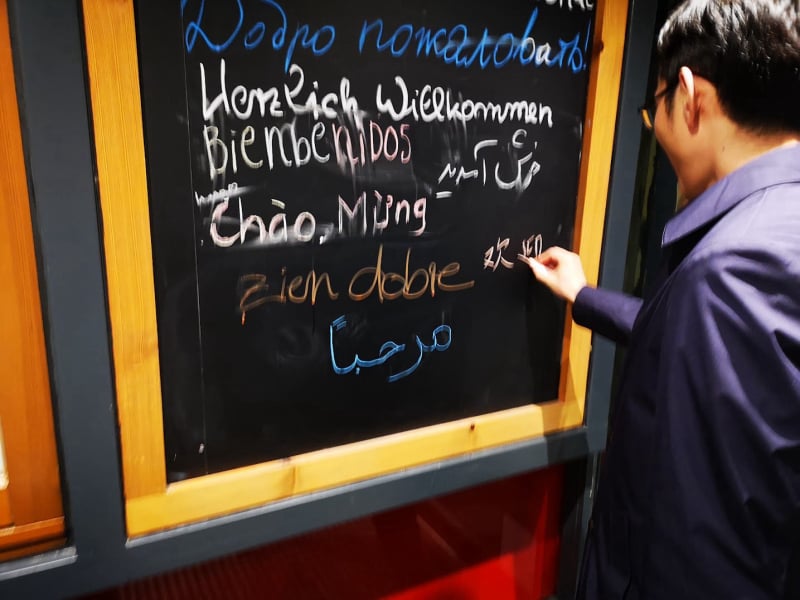 Добро пожаловать!
Herzlich Willkommen
BienbeNiDOS
آمدید
Chào, Mừng
欢
zien dobre
مرحباً